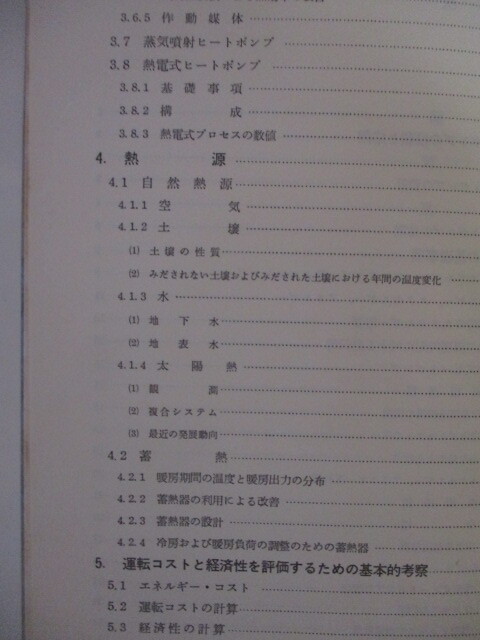 3.6.5 作動媒体
3.7 蒸気噴射ヒートポンプ
3.8 熱電式ヒートポンプ
3.8.1 基礎事項
3.8.2 構成
3.8.3 熱電式プロセスの数値
4. 熱源
4.1 自然熱源
4.1.1 空気
4.1.2 土壌
(1) 土壌の性質
(2) みだされない土壌およびみだされた土壌における年間の温度変化
4.1.3 水
(1) 地下水
(2) 地表水
4.1.4 太陽熱
(1) 観測
(2) 複合システム
(3) 最近の発展動向
4.2 蓄熱
4.2.1 暖房期間の温度と暖房出力の分布
4.2.2 蓄熱器の利用による改善
4.2.3 蓄熱器の設計
4.2.4 冷房および暖房負荷の調整のための蓄熱器
5. 運転コストと経済性を評価するための基本的考察
5.1 エネルギー・コスト
5.2 運転コストの計算
5.3 経済性の計算